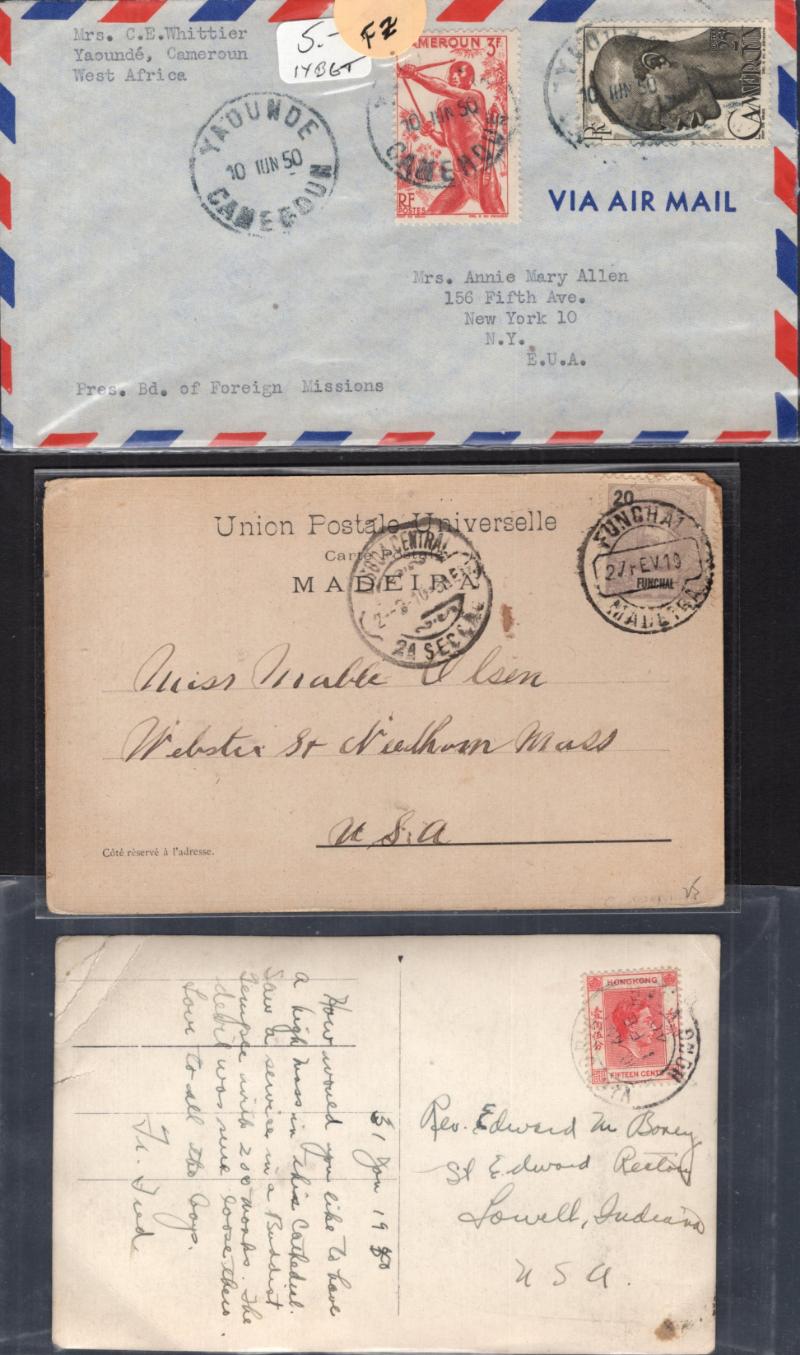 Mrs. C.E.Whittier
Yaoundé, Cameroun
West Africa
5.-
1YBGT
FZ
CAMEROUN 3F
RF
POSTES
CAMEROUN
RF
YAOUNDE
10 JUN 50
CAMEROUN
10 JUN 50
CAMEROUN
10 JUN 50
VIA AIR MAIL
Mrs. Annie Mary Allen
156 Fifth Ave.
New York 10
N.Y.
E.U.A.
Pres. Bd. of Foreign Missions
Union Postale Universelle
Carte Postale
MADEIRA
CENTRAL
2A SECÇÃO
20
FUNCHAL
FUNCHAL
MADEIRA
Miss Mable Olsen
Webster St Needham Mass
U.S.A
Côté réservé à l'adresse.
HONGKONG
壹角伍分
FIFTEEN CENTS
31 Jan 1950
How would you like to have
a high Mass in this Cathedral.
Saw a service in a Buddist
Temple with 200 monks. The
devil was sure loose there.
Love to all the boys.
Fr. Fred
Rev. Edward M Boney
St Edward Rectory
Lowell, Indiana
USA.